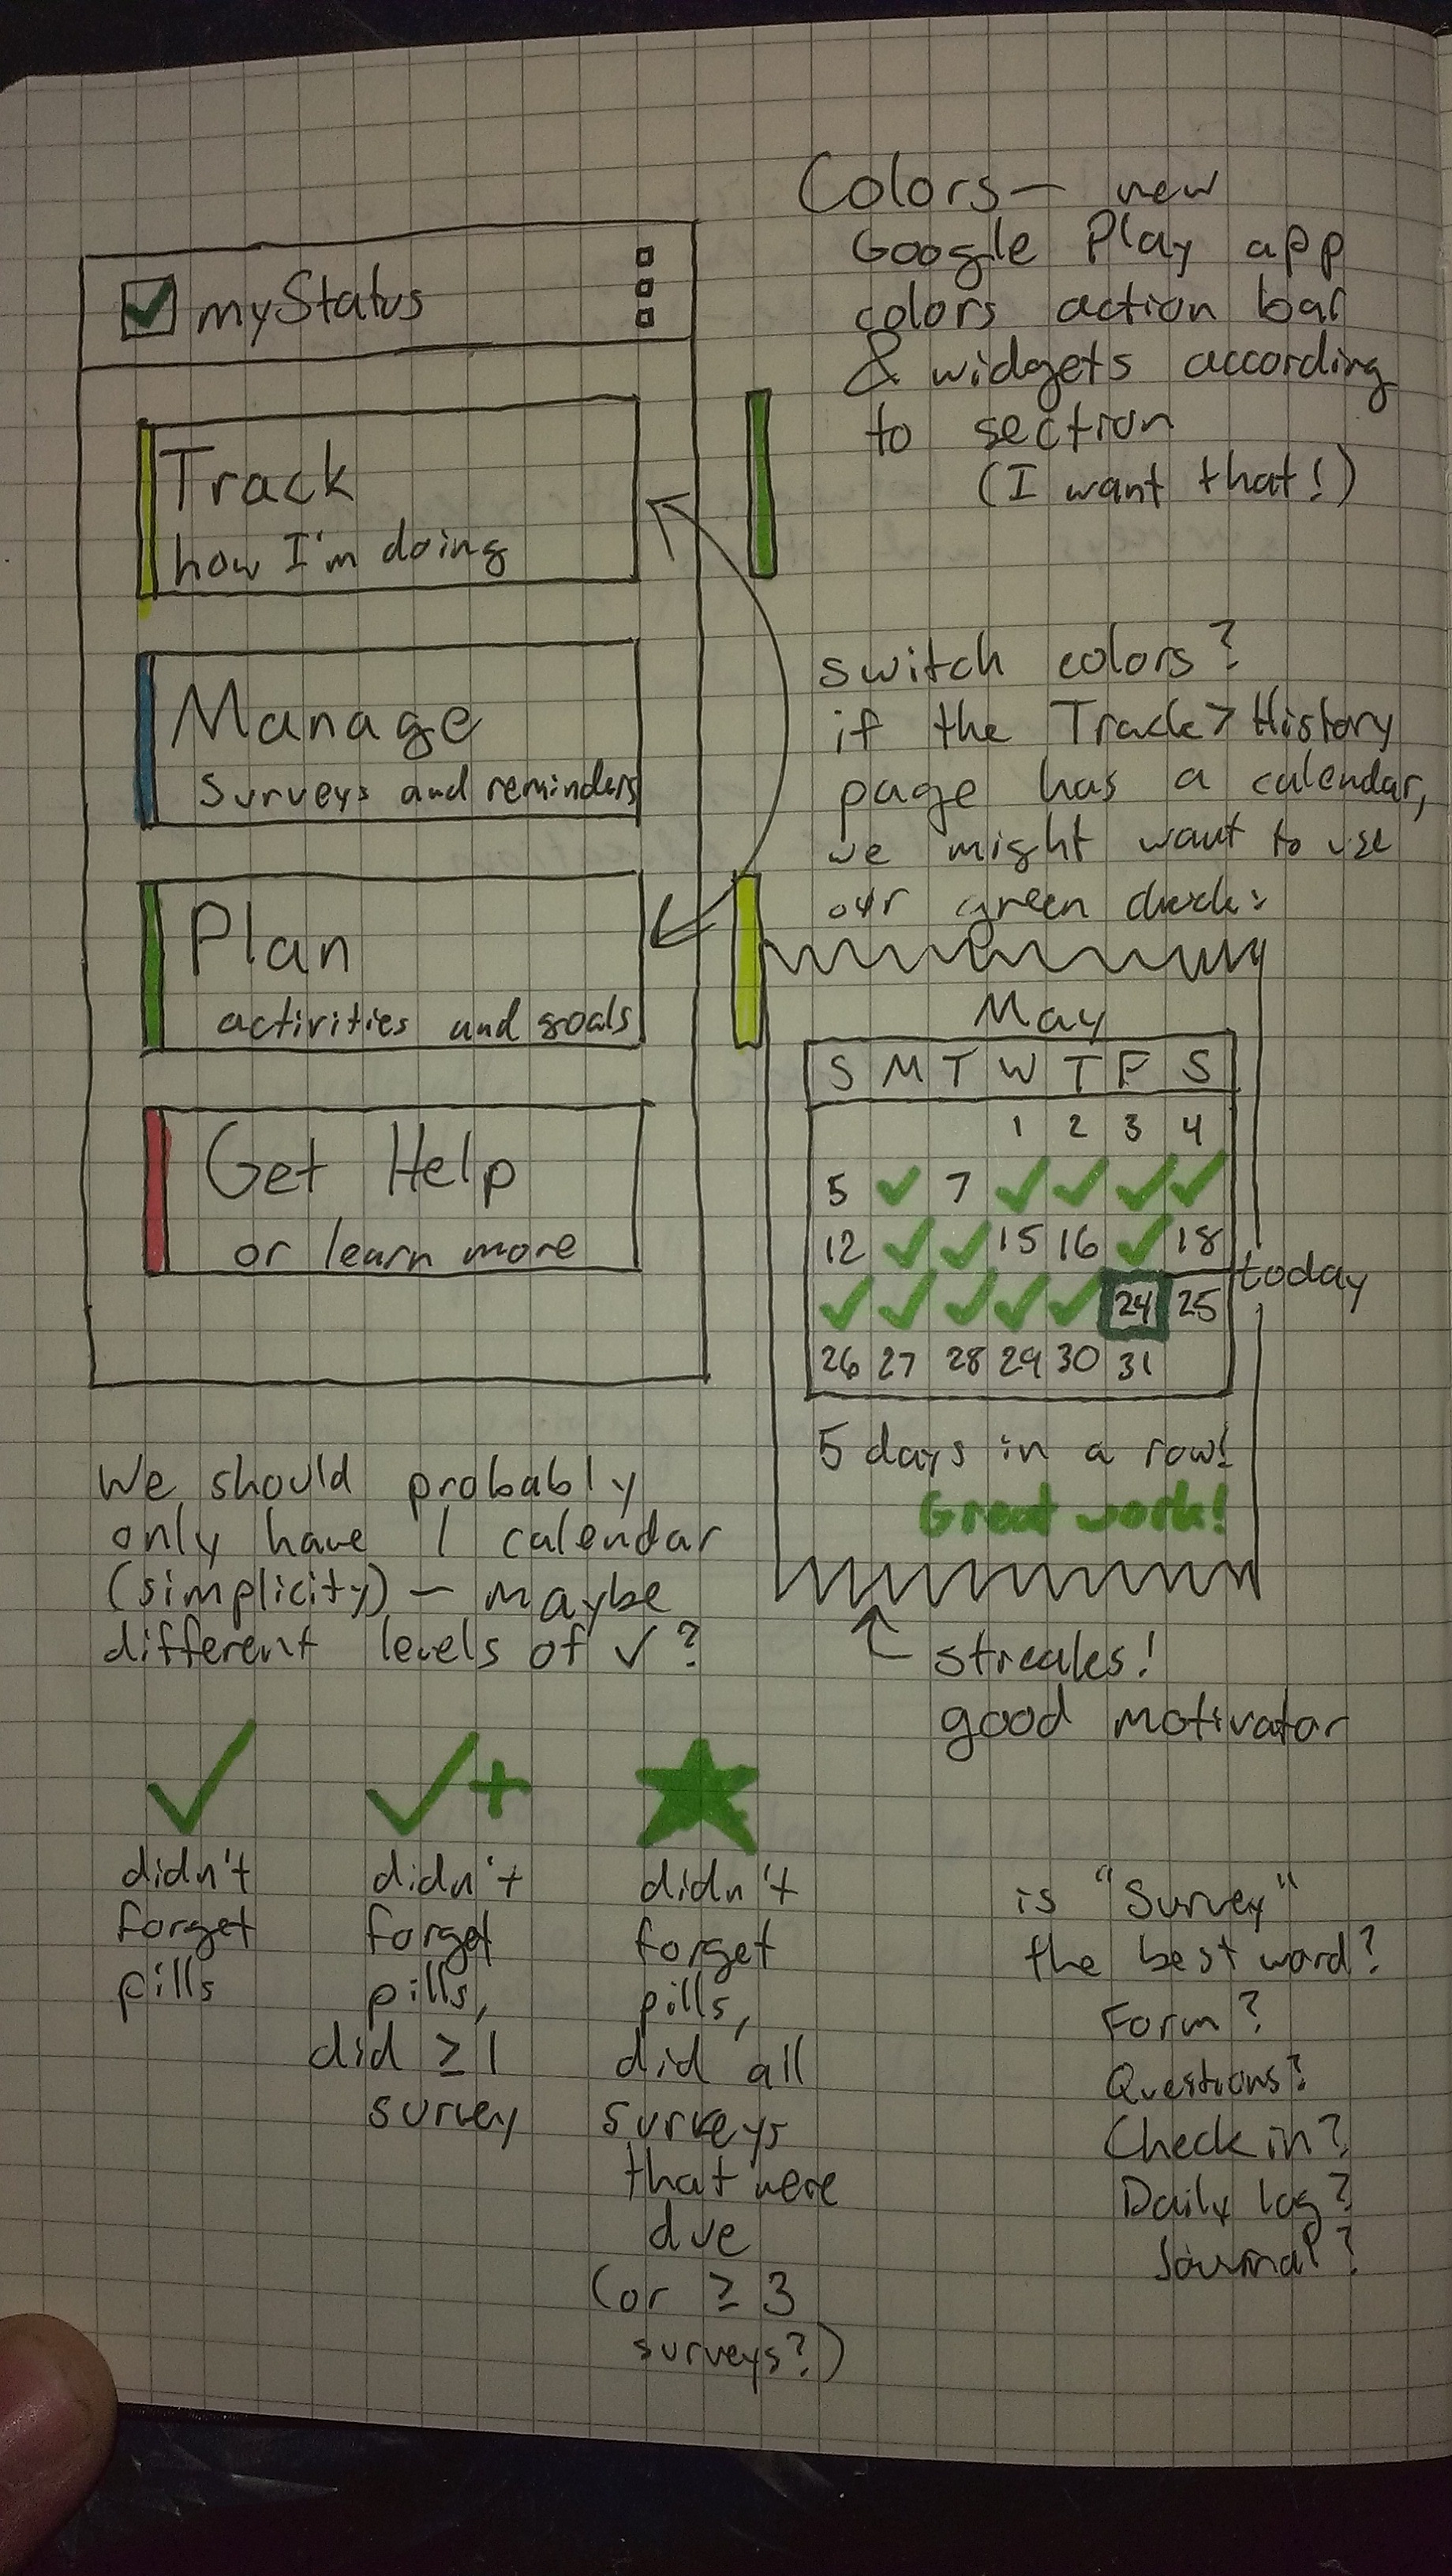 myStatus
Track
how I'm doing
Manage
surveys and reminders
Plan
activities and goals
Get Help
or learn more
Colors— new
Google Play app
colors action bar
& widgets according
to section
(I want that!)
switch colors?
if the Track > History
page has a calendar,
we might want to use
our green check:
May
S M T W T F S
1 2 3 4
5 ✓ 7 ✓ ✓ ✓ ✓
12 ✓ ✓ 15 16 ✓ 18
today
✓ ✓ ✓ ✓ ✓ 24 25
26 27 28 29 30 31
5 days in a row!
Great work!
streaks!
good motivator
We should probably
only have 1 calendar
(simplicity) — maybe
different levels of ✓?
✓
didn't
forget
pills
✓+
didn't
forget
pills,
did ≥ 1
survey
★
didn't
forget
pills,
did all
surveys
that were
due
(or ≥ 3
surveys?)
is "Survey"
the best word?
Form?
Questions?
Check in?
Daily log?
Journal?